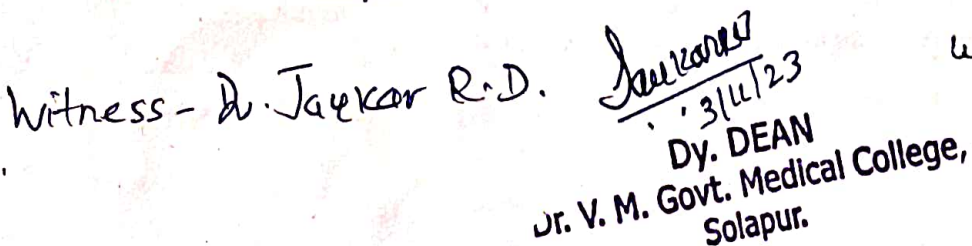 Witness - Dr. Jaykar R.D.
3/11/23
Dy. DEAN
Dr. V. M. Govt. Medical College,
Solapur.